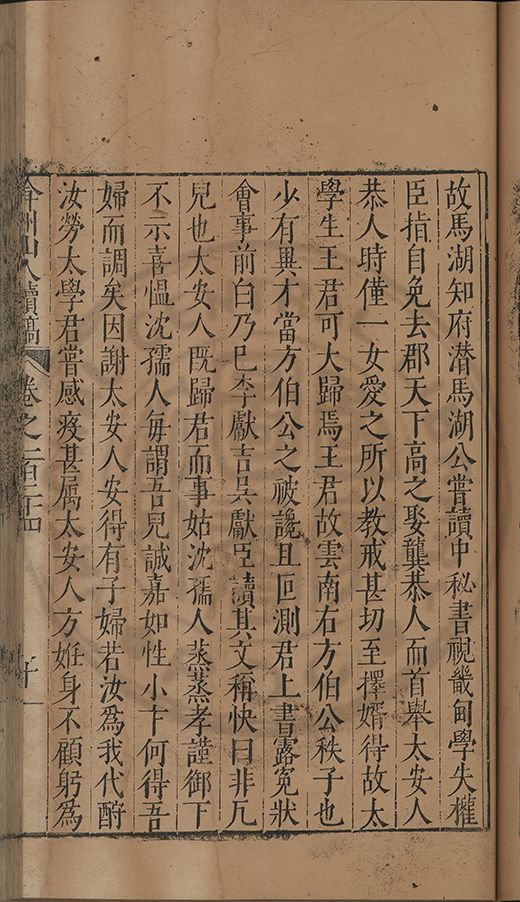 故馬湖知府潛馬湖公嘗讀中秘書視畿甸學失權
臣指自免去郡天下高之娶龔恭人而首舉太安人
恭人時僅一女愛之所以教戒甚切至擇婿得故太
學生王君可大歸焉王君故雲南右方伯公秩子也
少有異才當方伯公之被讒且叵測君上書露冤狀
會事前白乃已李獻吉吳獻臣讀其文稱快曰非凡
兒也太安人既歸君而事姑沈孺人蒸蒸孝謹御下
不示喜慍沈孺人每謂吾兒誠嘉如性小卞何得吾
婦而調矣因謝太安人安得有子婦若汝為我代酧
汝勞太學君嘗感疫甚属太安人方姙身不顧躬為
弇州山人續稿 卷之一百二十四 十一